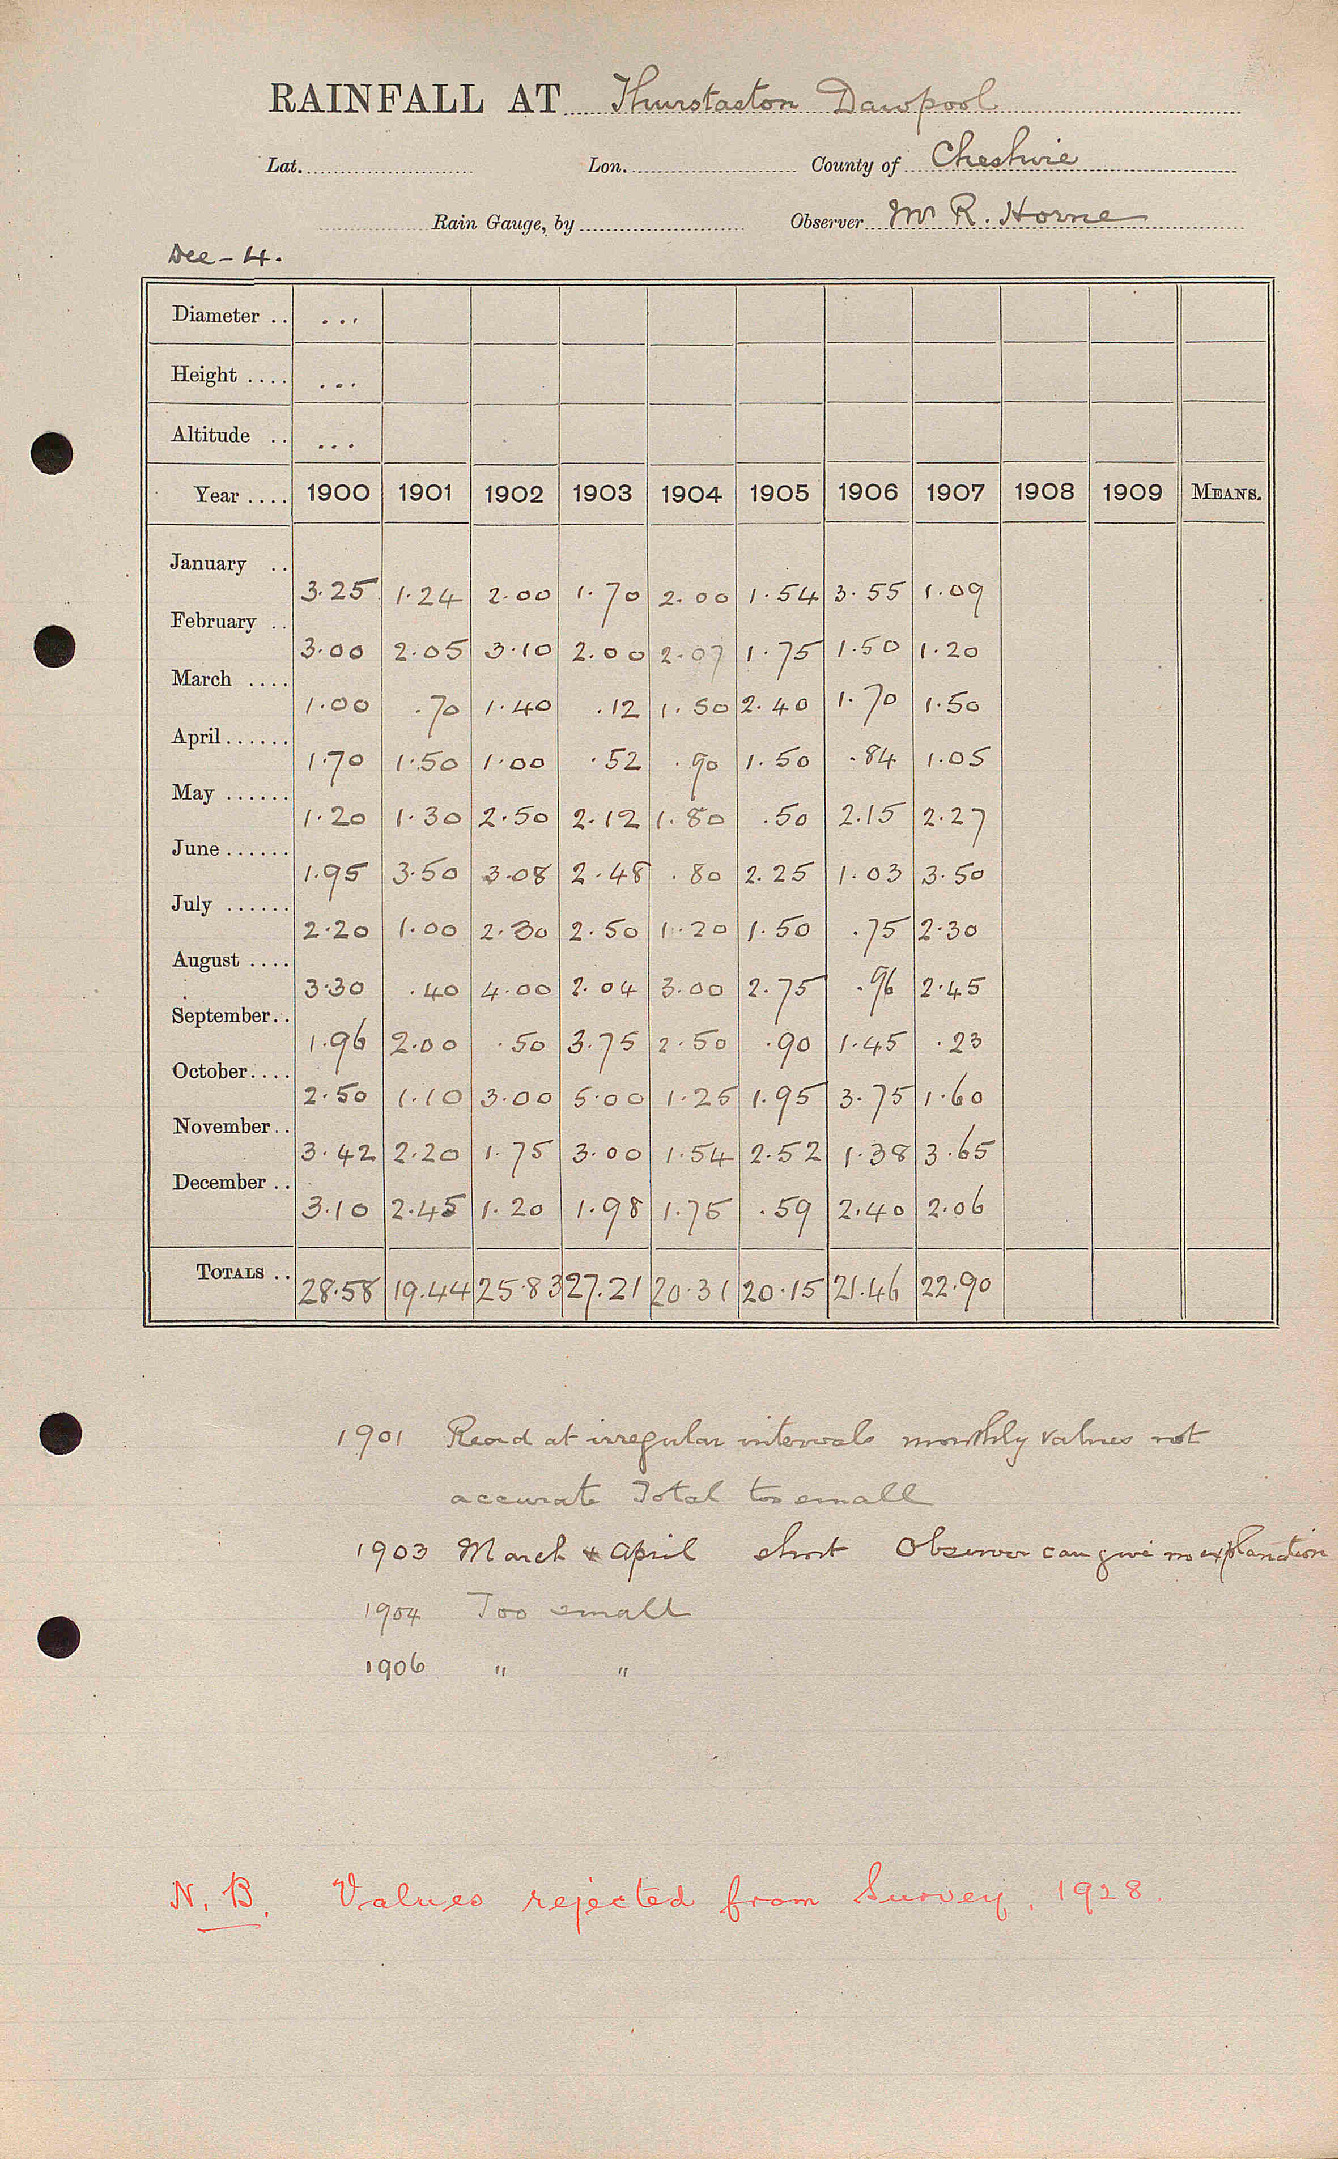 RAINFALL AT Thurstaston Dawpool
Lat. Lon. County of Cheshire
Rain Gauge, by Observer Mr R. Horne
Dee - 4.
Diameter .. ...
Height .... ...
Altitude .. ...
Year .... 1900 1901 1902 1903 1904 1905 1906 1907 1908 1909 MEANS.
January .. 3.25 1.24 2.00 1.70 2.00 1.54 3.55 1.09
February .. 3.00 2.05 3.10 2.00 2.07 1.75 1.50 1.20
March .... 1.00 .70 1.40 .12 1.50 2.40 1.70 1.50
April ...... 1.70 1.50 1.00 .52 .90 1.50 .84 1.05
May ...... 1.20 1.30 2.50 2.12 1.80 .50 2.15 2.27
June ...... 1.95 3.50 3.08 2.48 .80 2.25 1.03 3.50
July ...... 2.20 1.00 2.30 2.50 1.20 1.50 .75 2.30
August .... 3.30 .40 4.00 2.04 3.00 2.75 .96 2.45
September .. 1.96 2.00 .50 3.75 2.50 .90 1.45 .23
October .... 2.50 1.10 3.00 5.00 1.25 1.95 3.75 1.60
November .. 3.42 2.20 1.75 3.00 1.54 2.52 1.38 3.65
December .. 3.10 2.45 1.20 1.98 1.75 .59 2.40 2.06
TOTALS .. 28.58 19.44 25.83 27.21 20.31 20.15 21.46 22.90
1901 Read at irregular intervals monthly values not
accurate Total too small
1903 March & April short Observer can give no explanation
1904 Too small
1906 " "
N.B. Values rejected from Survey, 1928.